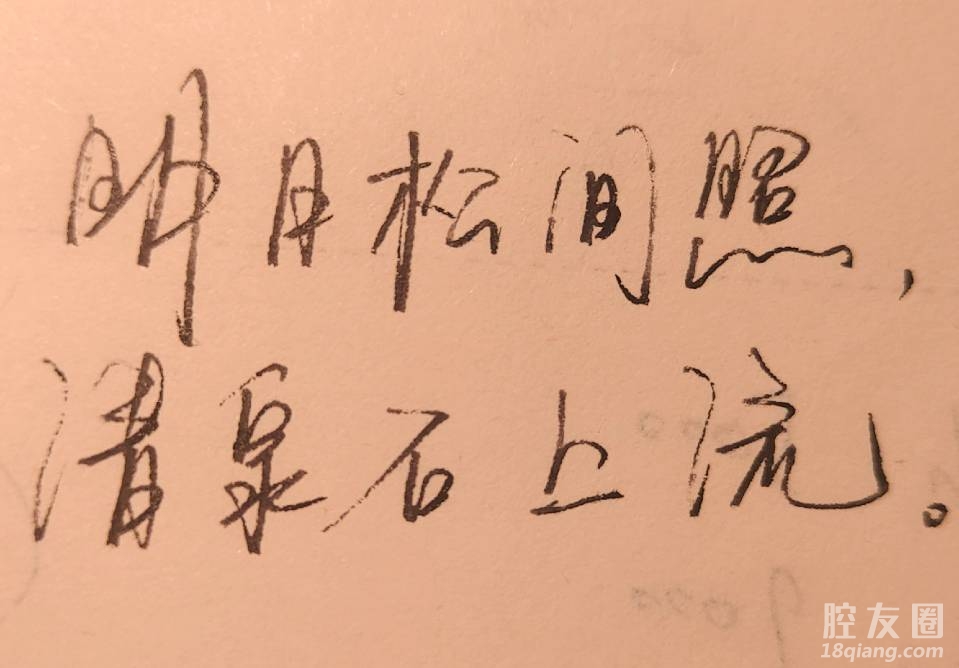 明月松间照,
清泉石上流。
腔友圈
18qiang.com